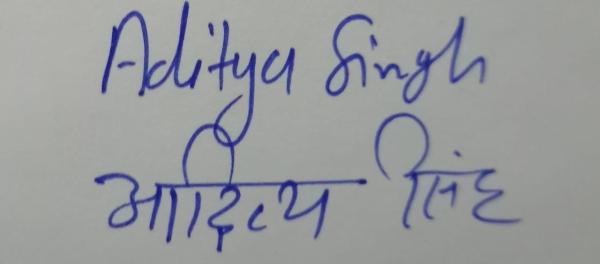 Aditya Singh
आदित्य सिंह